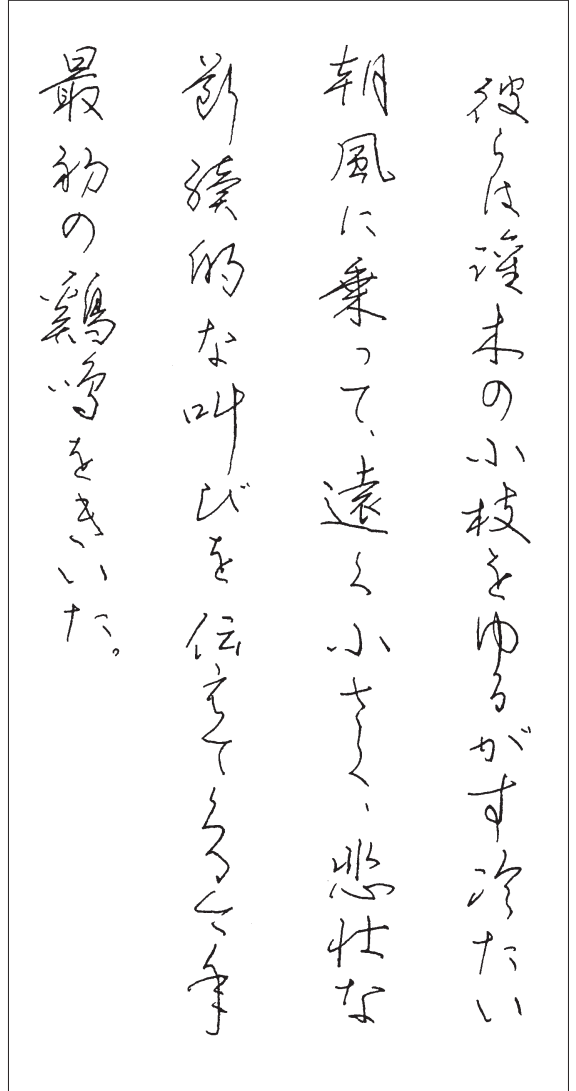 彼らは灌木の小枝をゆるがす冷たい
朝風に乗って、遠く小さく、悲壮な
断続的な叫びを伝えてくる今年
最初の鶏鳴をきいた。